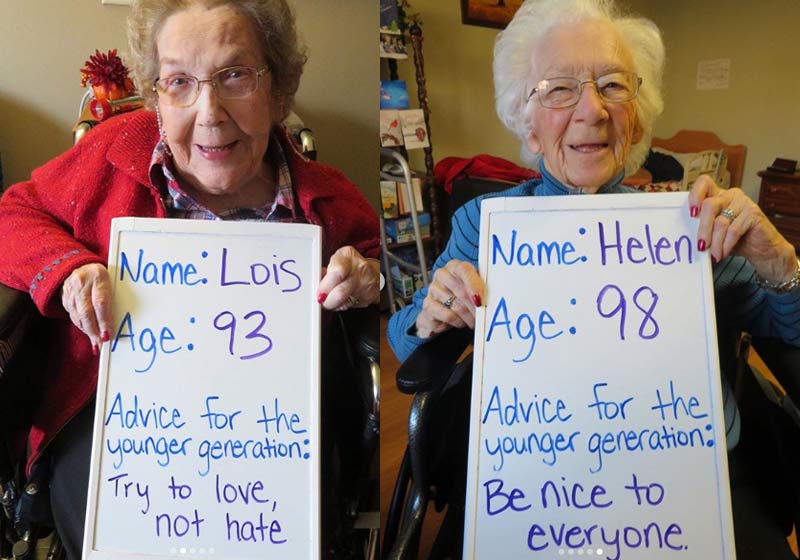 Name: Lois
Age: 93
Advice for the
younger generation:
Try to love,
not hate
Name: Helen
Age: 98
Advice for the
younger generation:
Be nice to
everyone.